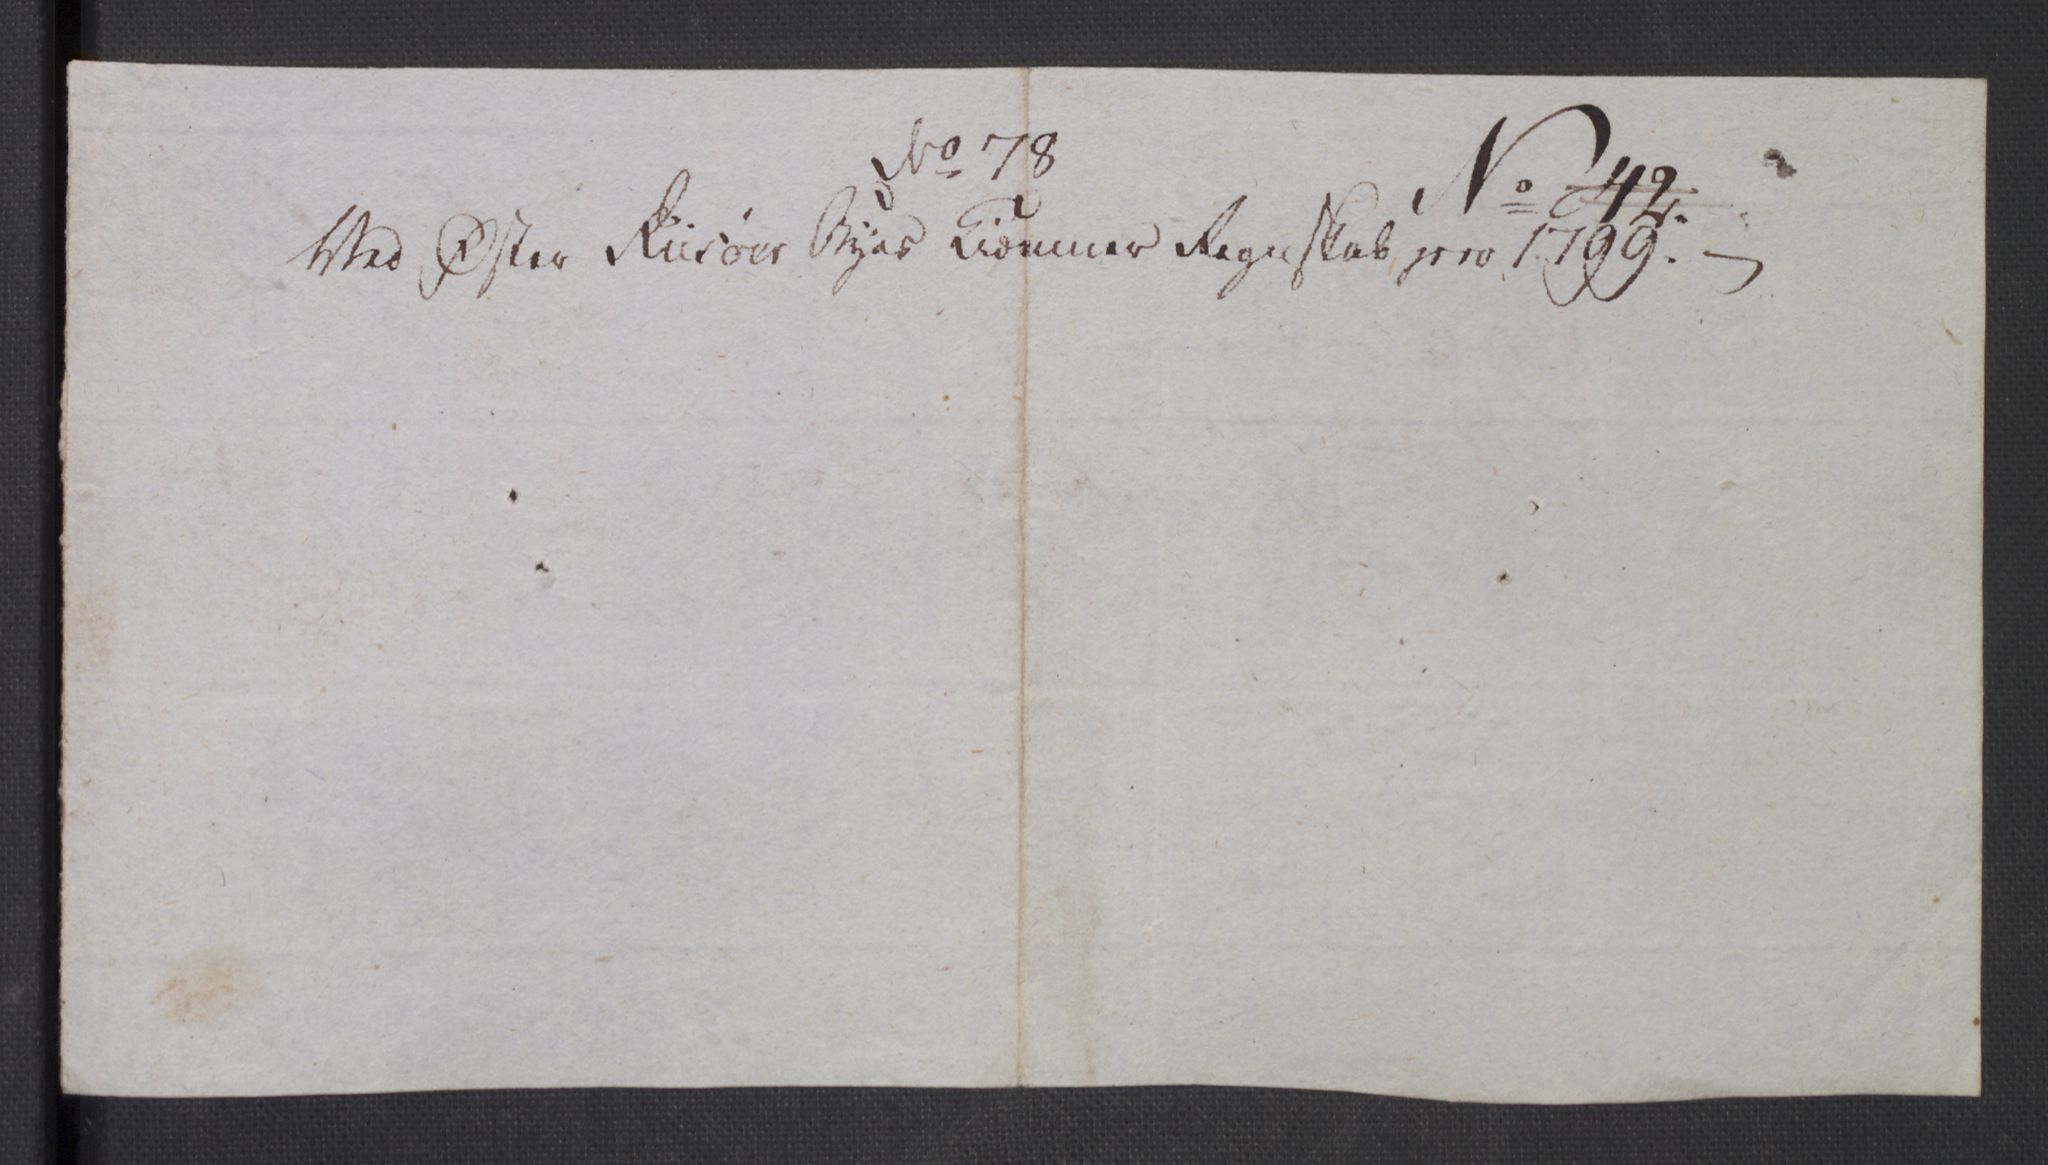 No 78
No 42.
Ved Øster Riisöer Byes Kiemner Regnskab pro 1799.